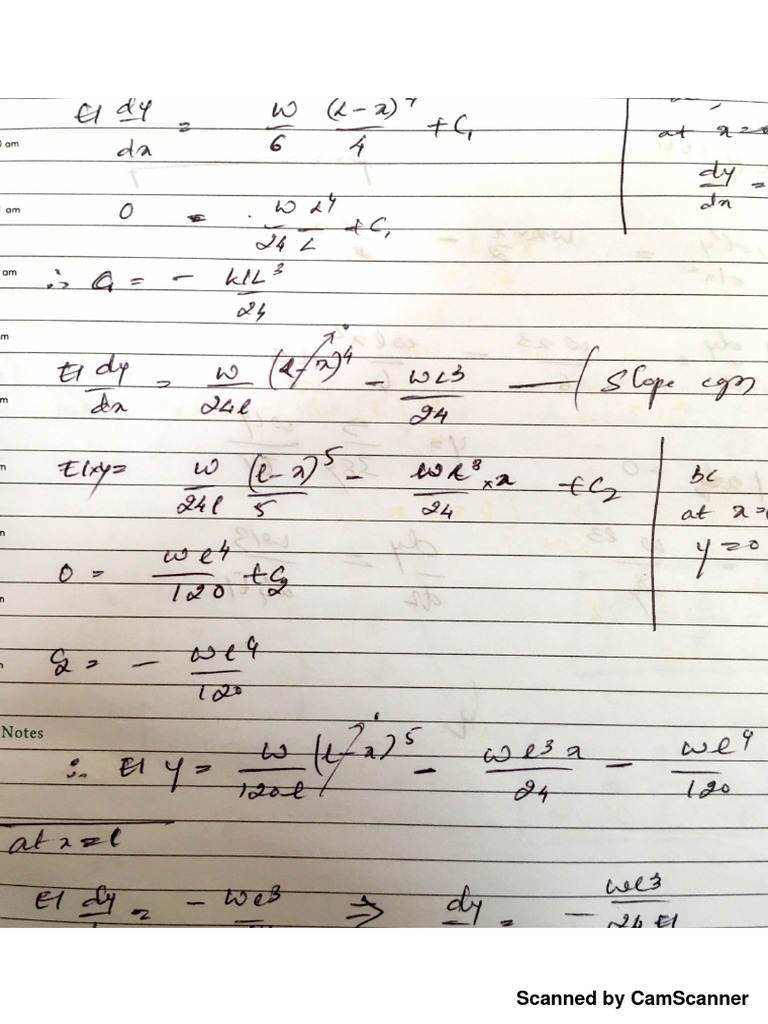 EI dy/dx = w/6 (l-x)⁴/4 + C₁
at x =
dy/dx =
am
0 = w L⁴/24 L + C₁
am
∴ C₁ = - wL³/24
am
m
EI dy/dx = w/24l (l-x)⁴ - wl³/24 — (Slope eqn
m
EI×y = w/24l (l-x)⁵/5 - wl³/24 × x + C₂
BC
at x =
y = 0
0 = wl⁴/120 + C₂
C₂ = - wl⁴/120
Notes
∴ EI y = w/120l (l-x)⁵ - wl³x/24 - wl⁴/120
at x = l
EI dy = - wl³ ⇒ dy = - wl³/24 EI
Scanned by CamScanner